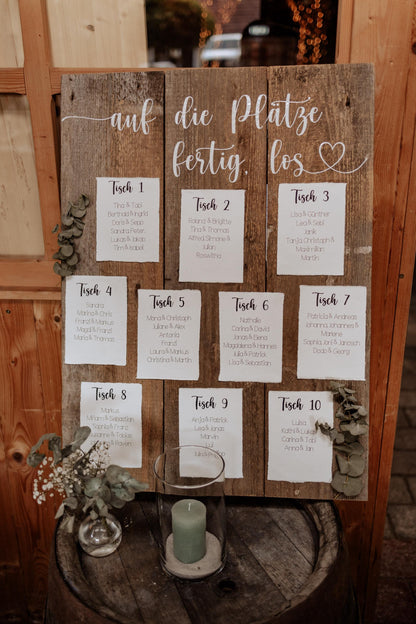 auf die Plätze,
fertig, los
Tisch 1
Tina & Tobi
Bertrad & Ingrid
Doris & Sepp
Sandra & Peter
Lukas & Jakob
Tim & Isabel
Tisch 2
Roland & Brigitte
Tina & Thomas
Alfred Simone &
Julian
Roswitha
Tisch 3
Lisa & Günther
Lea & Sebi
Janik
Tanja Christoph &
Maximilian
Martin
Tisch 4
Sandra &
Marina & Chris
Franzi & Markus
Magdi & Franzi
Maria & Thomas
Tisch 5
Mona & Christoph
Juliane & Alex
Antonia
Franzi
Laura & Markus
Christoph & Martin
Tisch 6
Nathalie
Carina & David
Jonas & Elena
Magdalena & Hannes
Julia & Patrick
Lisa & Sebastian
Tisch 7
Patricia & Andreas
Johanna Johannes &
Marlene
Sophia Joni & Janosch
Dodo & Georg
Tisch 8
Markus &
Miriam &
Sophia &
Franzi &
Anna & Tobias
Tisch 9
Anja & Patrick
Lena & Jonas
Marvin
Tisch 10
Luisa
Kathi & Lukas
Carina & Tobi
Anna & Jan